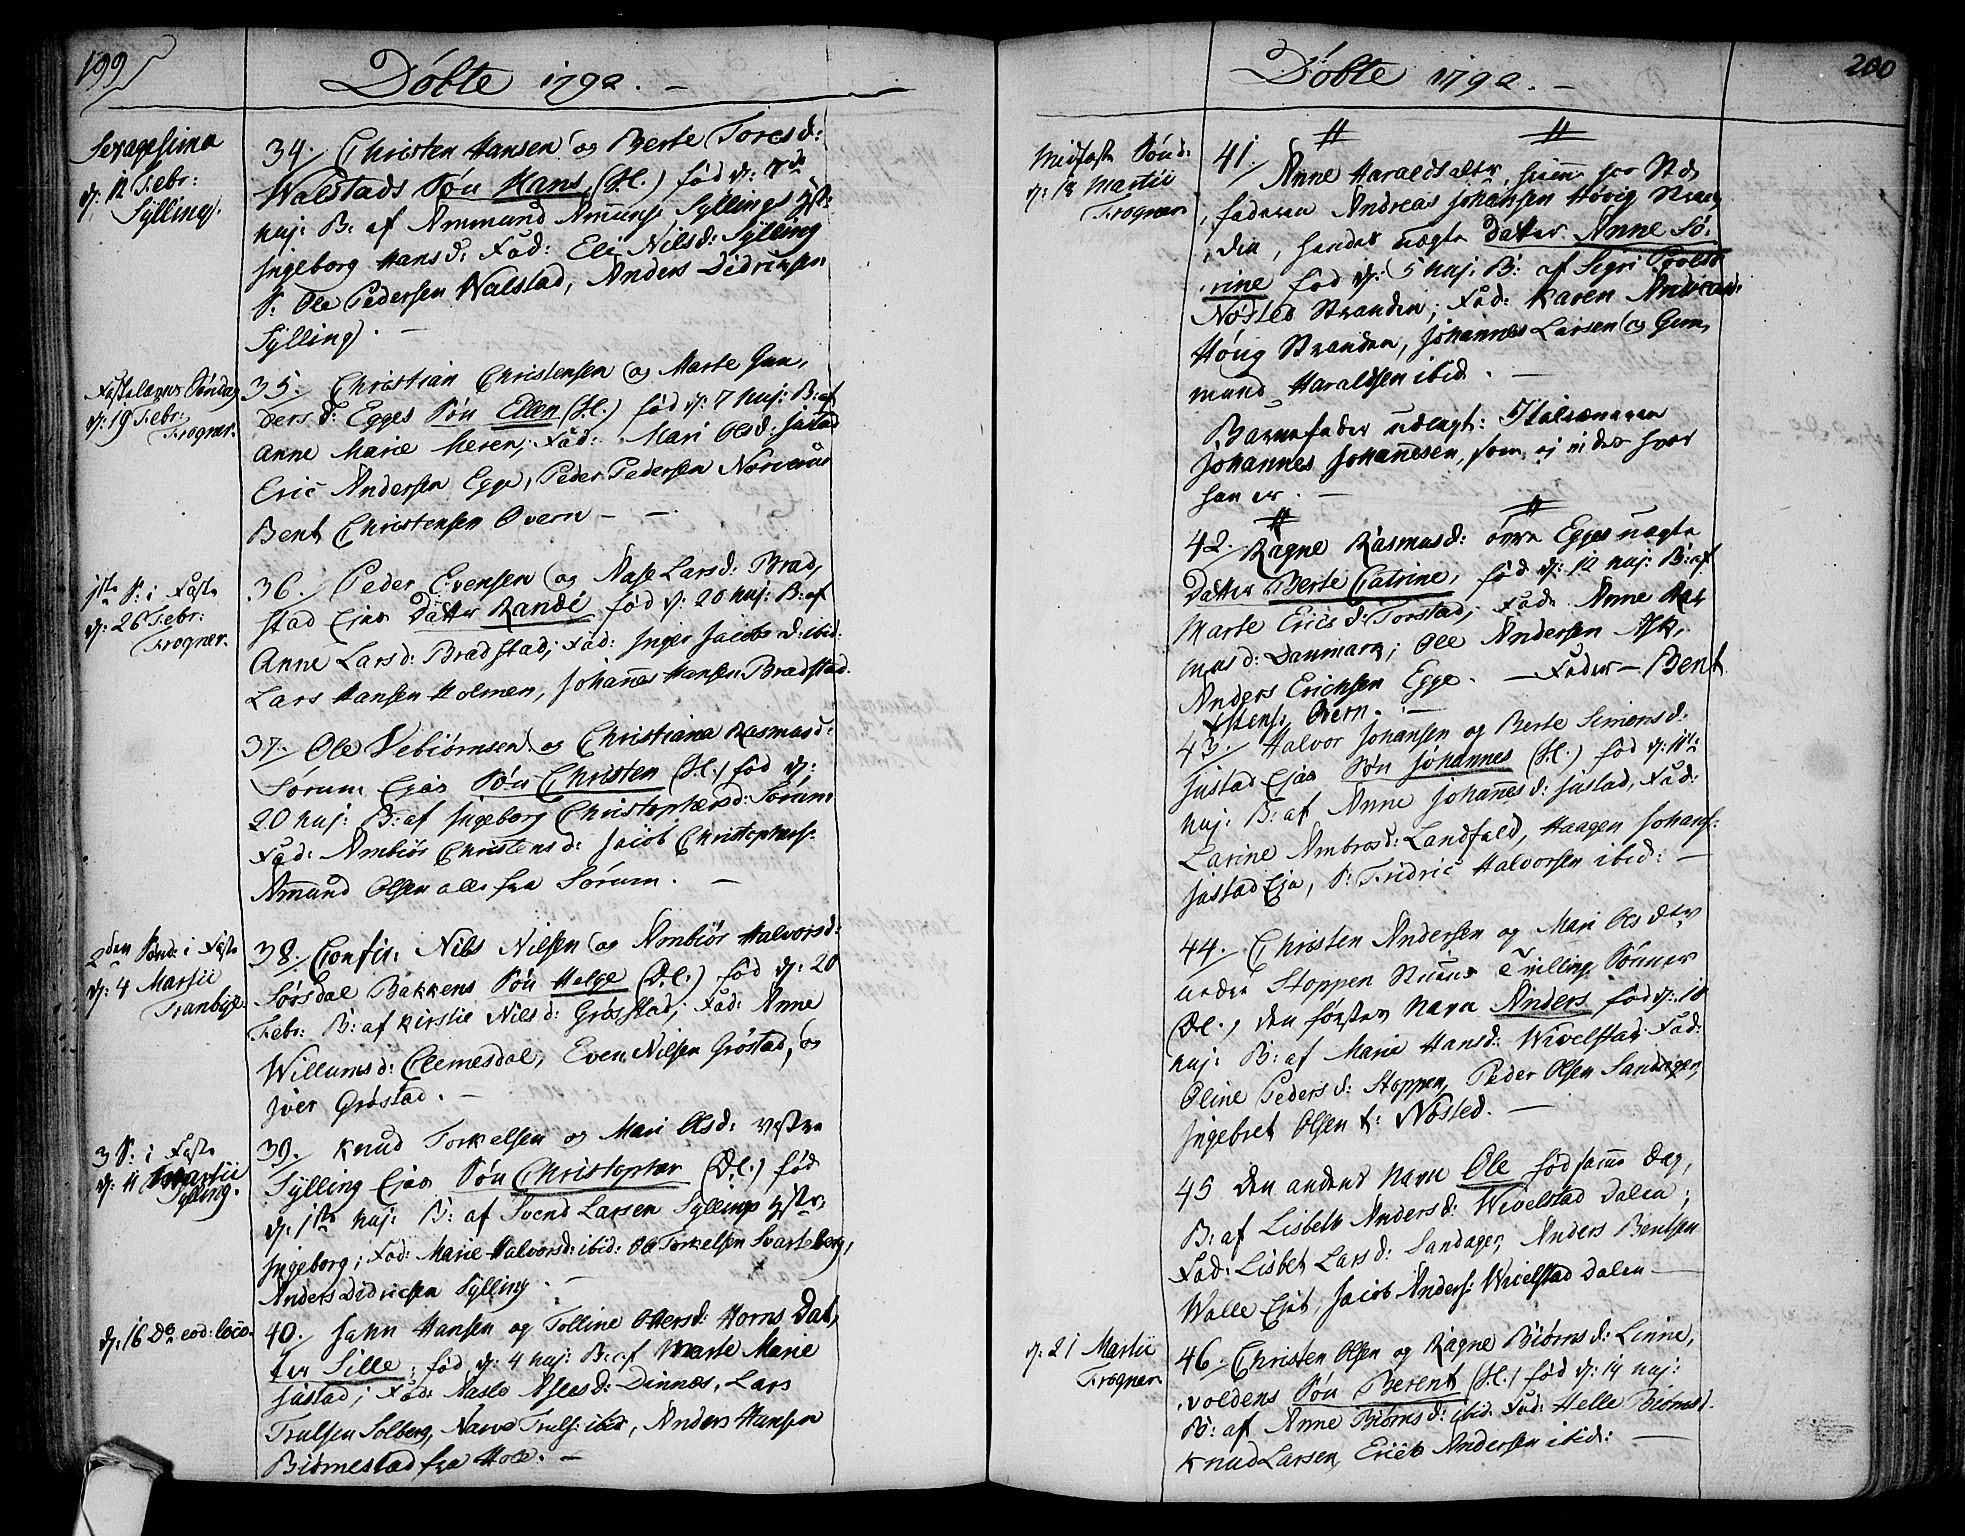 199
Döbte 1792. —
Sexagesima
d: 12 Febr:
Sylling.
34. Christen Hansen og Berte Toresd:
Walstads Søn Hans (H.) fød d: 7de
huj: B: af Ammund Amunds Syllings Hstr:
Ingeborg Hansd: Fad: Eli Nilsd: Sylling
S. Ole Pedersen Walstad, Anders Didriksen
Sylling. —
Fastelavns Søndag
d: 19 Febr:
Frogner.
35. Christian Christensen og Marte Gun,
dersd: Egges Søn Ellen (H.) fød d: 7 huj: B: af
Anne Marie Meren; Fad: Mari Olsd: Justad
Eric Andersen Egge, Peder Pedersen Norverud
Bent Christensen Overn — —
1ste S: i Faste
d: 26 Febr:
Frogner.
36. Peder Evensen og Aase Larsd: Brad,
stad Ejes Datter Randi fød d: 20 huj: B: af
Anne Larsd: Bradstad; Fad: Inger Jacobsd: ibid:
Lars Hansen Holmen, Johannes Hansen Bradstad.
37. Ole Vebiørnsen og Christiana Rasmusd:
Sørum Ejes Søn Christen (H.) fød d:
20 huj: B: af Ingeborg Christophersd: Sørum
Fad: Anbiør Christensd: Jacob Christophers:
Amund Olsen alle fra Sørum. —
2den Sønd: i Faste
d: 4 Martii
Tranbye
38. Confir: Nils Nilsen og Anbiør Halvorsd:
Sørsdal Bakkens Søn Helge (Dl.) fød d: 20
Febr: B: af Kirstie Nilsd: Grøstad; Fad: Anne
Willumsd: Clemesdal, Even Nilsen Grøstad, og
Iver Grøstad. —
3 S: i Faste
d: 11 Martii
Sylling.
39. Knud Torkelsen og Mari Olsd: vestre
Sylling Ejes Søn Christopher (Dl.) fød
d: 1ste huj: B: af Svend Larsen Syllings Hstr:
Ingeborg; Fad: Marie Halvorsd: ibid: Ole Torkelsen Svarteberg,
Anders Didricsen Sylling. —
d: 16 Do eod: loco.
40. Jahn Hansen og Tolline Ottersd: Horns Dat,
ter Sille, fød d: 4 huj: B: af Marte Marie
Justad; Fad: Aaste Aslesd: Dinnes, Lars
Trulsen Solberg, Narve Truls: ibid, Anders Hansen
Biørnestad fra Hole. —
Döbte 1792. —
200
Midfaste Sønd:
d: 18 Martii
Frogner
41. Anne Haraldsdatter, for St,
faderen Andreas Johansen Høvig Stran,
den, hendes uægte Datter Anne Sø,
rine fød d: 5 huj: B: af Sigri Povelsd:
Nøsted Stranden; Fad: Karen Andreasd:
Høvig Stranden, Johannes Larsen og Gun,
mund Haraldsen ibid. —
Barnefader udlagt: Italieneren
Johannes Johannesen, som ej vides hvor
han er. —
42. Ragne Rasmusd: øvre Egges uægte
Datter Berte Catrine, fød d: 12 huj: B: af
Marte Ericsd: Torstad; Fad: Anne Ras
musd: Danmark; Ole Andersen Ask,
Anders Erichsen Egge. — Fader — Bent
Estens, Overn. —
43. Halvor Johansen og Berte Simonsd:
Justad Ejes Søn Johannes (H.) fød d: 11te
huj: B: af Anne Johannesd: Justad, Fad:
Larine Ambrosd: Landfald, Haagen Johans:
Justad Eje, S: Fridric Halvorsen ibid: —
44. Christen Andersen og Mari Olsdatter
nedre Stoppen Stuens Tvilling Sønner
(Dl.) den førstes Navn Anders, fød d: 10
huj: B: af Marie Hansd: Wivelstad; Fad:
Oline Pedersd: Stoppen, Peder Olsen Sandager,
Ingebret Olsen t: Nøsted. —
45 den andens Navn Ole fød samme Dag,
B: af Lisbeth Andersd: Wivelstad Dalen;
Fad: Lisbet Larsd: Sandager, Anders Bentsen
Walle Ejet, Jacob Anders: Wivelstad Dalen —
d: 21 Martii
Frogner
46. Christen Olsen og Ragne Biørnsd: Linne,
voldens Søn Berent (H.) fød d: 14 huj:
B: af Anne Biørnsd: ibid: Fad: Helle Biørnsd.
Knud Larsen, Erick Andersen ibid: —